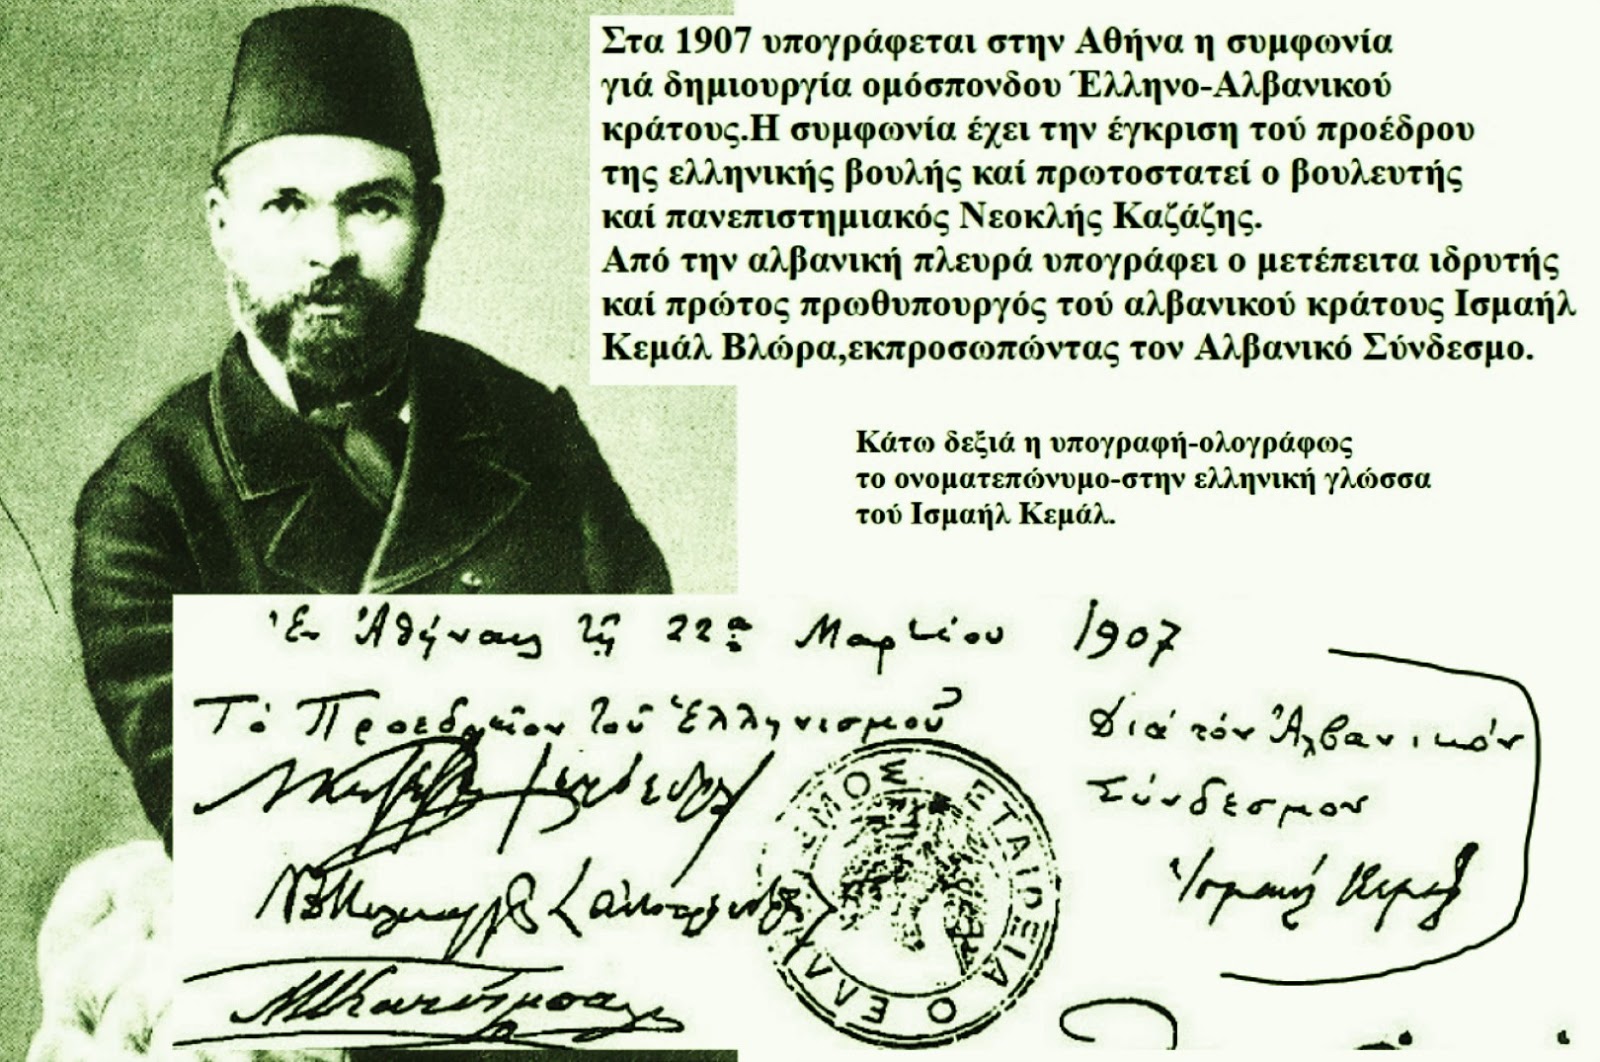 Στα 1907 υπογράφεται στην Αθήνα η συμφωνία
γιά δημιουργία ομόσπονδου Έλληνο-Αλβανικού
κράτους.Η συμφωνία έχει την έγκριση τού προέδρου
της ελληνικής βουλής καί πρωτοστατεί ο βουλευτής
καί πανεπιστημιακός Νεοκλής Καζάζης.
Από την αλβανική πλευρά υπογράφει ο μετέπειτα ιδρυτής
καί πρώτος πρωθυπουργός τού αλβανικού κράτους Ισμαήλ
Κεμάλ Βλώρα,εκπροσωπώντας τον Αλβανικό Σύνδεσμο.
Κάτω δεξιά η υπογραφή-ολογράφως
το ονοματεπώνυμο-στην ελληνική γλώσσα
τού Ισμαήλ Κεμάλ.
Ἐν Ἀθήναις τῇ 22ᾳ Μαρτίου 1907
Τὸ Προεδρεῖον τοῦ Ἑλληνισμοῦ
Διὰ τὸν Ἀλβανικὸν
Σύνδεσμον
Ἰσμαὴλ Κεμὰλ
ΕΤΑΙΡΕΙΑ Ο ΕΛΛΗΝΙΣΜΟΣ